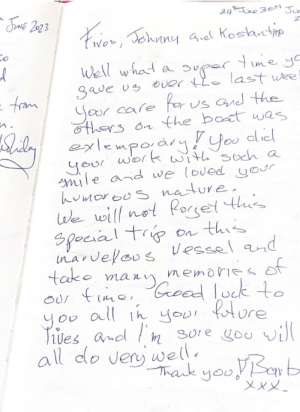 June 2023
Fivos, Johnny and Kostantino
Well what a super time yo
gave us over the last wee
Your care for us and the
others on the boat was
extempordry! You did
your work with such a
smile and we loved your
humorous nature.
We will not forget this
special trip on this
marvellous vessel and
take many memories of
our time. Good luck to
you all in your future
lives and I'm sure you will
all do very well.
Thank you! Barb
xxx.
from